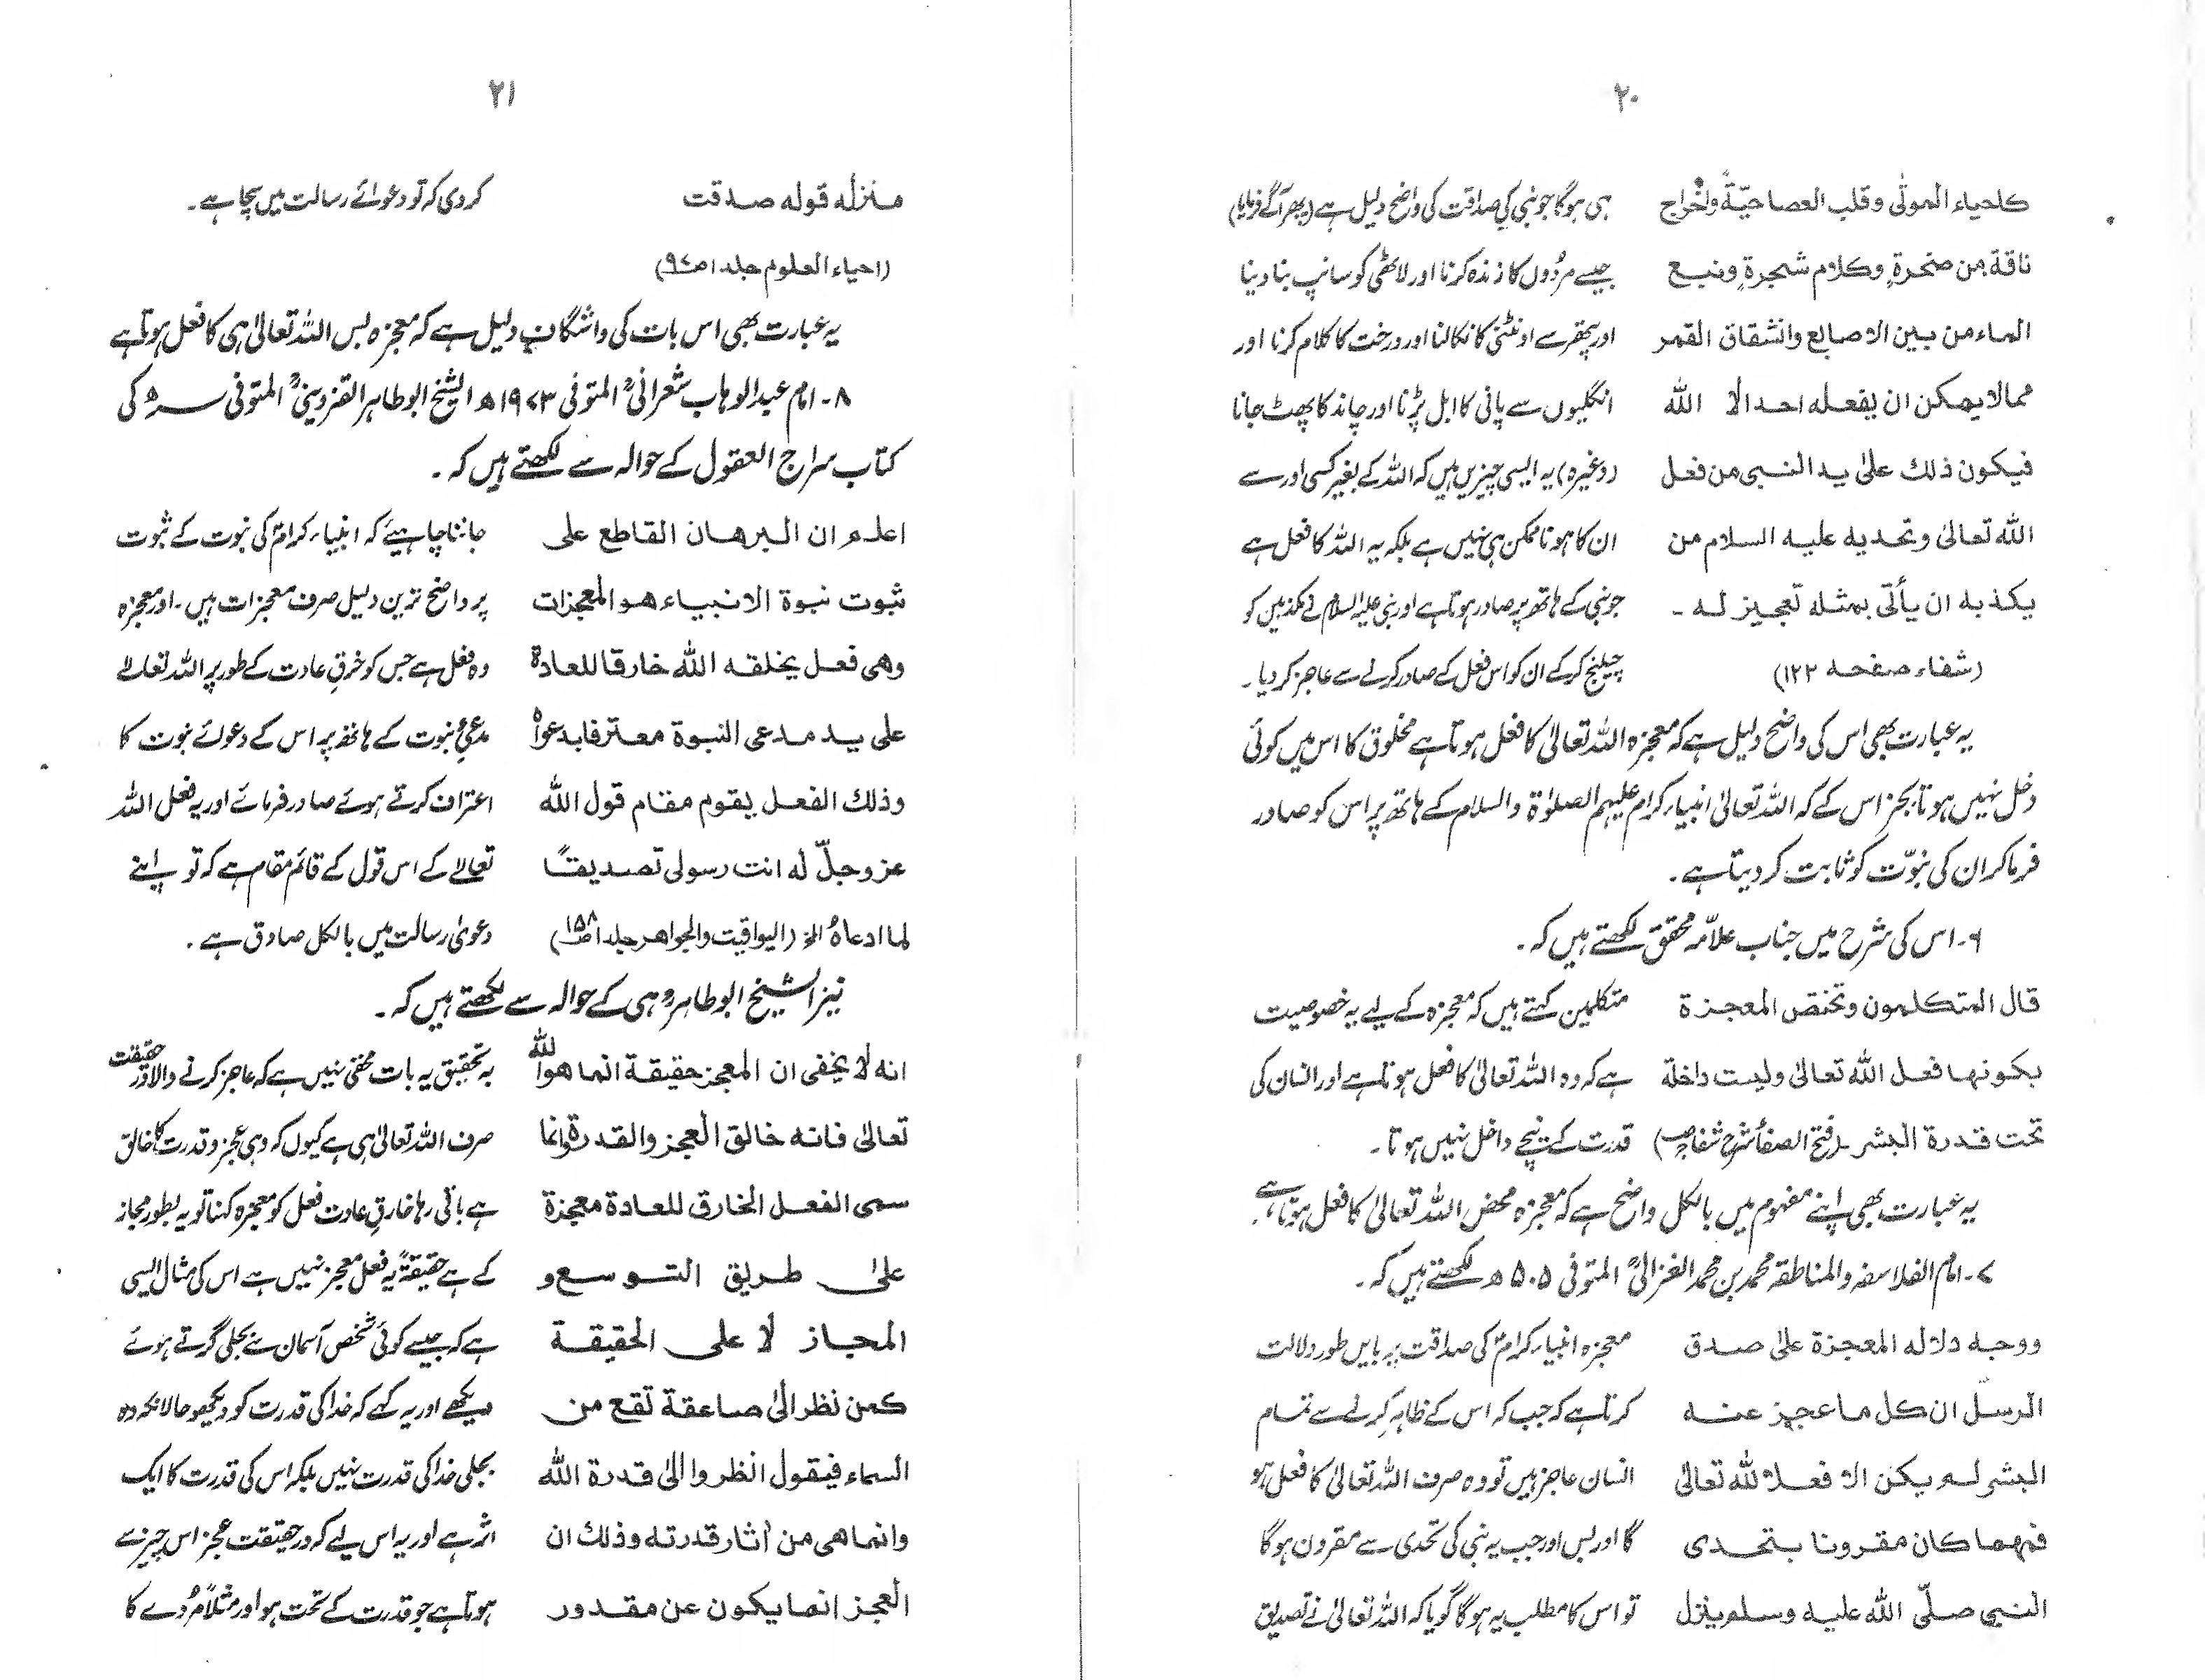 ۲۰
كاحياء الموتٰى وقلب العصا حيّةً واخراج ہی ہوگا جو نبی کی صداقت کی واضح دلیل ہے (پھر آگے فرمایا)
ناقة من صخرةٍ وكلام شجرةٍ ونبع جیسے مردُوں کا زندہ کرنا اور لاٹھی کو سانپ بنا دینا
الماء من بين الاصابع وانشقاق القمر اور پتھر سے اونٹنی کا نکالنا اور درخت کا کلام کرنا اور
مما لا يمكن ان يفعله احد الا الله انگلیوں سے پانی کا ابل پڑنا اور چاند کا پھٹ جانا
فيكون ذلك علىٰ يد النبى من فعل (وغیرہ) یہ ایسی چیزیں ہیں کہ اللہ کے بغیر کسی اور سے
الله تعالىٰ وتحديه عليه السلام من ان کا ہونا ممکن ہی نہیں ہے بلکہ یہ اللہ کا فعل ہے
يكذبه ان يأتى بمثله تعجيز له ۔ جو نبی کے ہاتھ پر صادر ہوتا ہے اور نبی علیہ السلام نے مکذبین کو
(شفاء صفحہ ۱۲۲) چیلنج کر کے ان کو اس فعل کے صادر کرنے سے عاجز کر دیا ۔
یہ عبارت بھی اس کی واضح دلیل ہے کہ معجزہ اللہ تعالیٰ کا فعل ہوتا ہے مخلوق کا اس میں کوئی
دخل نہیں ہوتا بجز اس کے کہ اللہ تعالیٰ انبیاء کرام علیہم الصلوٰۃ والسلام کے ہاتھ پر اس کو صادر
فرما کر ان کی نبوّت کو ثابت کر دیتا ہے ۔
۶۔ اس کی شرح میں جناب علامّہ محقق لکھتے ہیں کہ ۔
قال المتكلمون وتختص المعجزة متکلمین کہتے ہیں کہ معجزہ کے لیے یہ خصوصیت
بكونها فعل الله تعالىٰ وليست داخلة ہے کہ وہ اللہ تعالیٰ کا فعل ہوتا ہے اور انسان کی
تحت قدرة البشر ۔ (فتح الصفأ شرح شفا) قدرت کے نیچے داخل نہیں ہوتا ۔
یہ عبارت بھی اپنے مفہوم میں بالکل واضح ہے کہ معجزہ محض اللہ تعالیٰ کا فعل ہوتا ہے ۔
۷۔ امام الفلاسفہ والمناطقہ محمد بن محمد الغزالیؒ المتوفی ۵۰۵ھ لکھتے ہیں کہ ۔
ووجه دلاله المعجزة علىٰ صدق معجزہ انبیاء کرامؑ کی صداقت پر بایں طور دلالت
الرسل ان كل ما عجز عنه کرتا ہے کہ جب کہ اس کے ظاہر کرنے سے تمام
البشر لم يكن الا فعلا لله تعالىٰ انسان عاجز ہیں تو وہ صرف اللہ تعالیٰ کا فعل ہو
فمهما كان مقرونا بتحدى گا اور بس اور جب یہ نبی کی تحدی سے مقرون ہوگا
النبى صلّى الله عليه وسلم ينزل تو اس کا مطلب یہ ہوگا گویا کہ اللہ تعالیٰ نے تصدیق
۲۱
منزلہ قوله صدقت کر دی کہ تو دعوائے رسالت میں سچا ہے ۔
(احياء العلوم جلد ا ص۹۷)
یہ عبارت بھی اس بات کی واشگاف دلیل ہے کہ معجزہ بس اللہ تعالیٰ ہی کا فعل ہوتا ہے
۸۔ امام عبد الوہاب شعرانیؒ المتوفی ۹۷۳اھ الشیخ ابو طاہر القزوینیؒ المتوفی سـہ کی
کتاب سراج العقول کے حوالہ سے لکھتے ہیں کہ ۔
اعلم ان البرهان القاطع على جاننا چاہیئے کہ انبیاء کرامؑ کی نبوت کے ثبوت
ثبوت نبوة الانبياء هو المعجزات پر واضح ترین دلیل صرف معجزات ہیں ۔ اور معجزہ
وهى فعل يخلقه الله خارقا للعادة وہ فعل ہے جس کو خرقِ عادت کے طور پر اللہ تعالےٰ
على يد مدعى النبوة معترفا بدعواه مدعیِٔ نبوت کے ہاتھ پر اس کے دعوائے نبوت کا
وذلك الفعل يقوم مقام قول الله اعتراف کرتے ہوئے صادر فرمائے اور یہ فعل اللہ
عزوجلّ له انت رسولى تصديقًا تعالےٰ کے اس قول کے قائم مقام ہے کہ تو اپنے
لما ادعاهُ الخ (اليواقيت والجواهر جلد ا ص۱۵۸) دعویٰ رسالت میں بالکل صادق ہے ۔
نیز الشیخ ابو طاہرؒ ہی کے حوالہ سے لکھتے ہیں کہ ۔
انه لا يخفى ان المعجز حقيقة انما هو الله بہ تحقیق یہ بات مخفی نہیں ہے کہ عاجز کرنے والا در حقیقت
تعالىٰ فانه خالق العجز والقدرة وانما صرف اللہ تعالیٰ ہی ہے کیوں کہ وہی عجز و قدرت کا خالق
سمى الفعل الخارق للعادة معجزة ہے باقی رہا خارقِ عادت فعل کو معجزہ کہنا تو یہ بطور مجاز
علىٰ طريق التوسع و کے ہے حقیقۃً یہ فعل معجز نہیں ہے اس کی مثال ایسی
المجاز لا على الحقيقة ہے کہ جیسے کوئی شخص آسمان سے بجلی گرتے ہوئے
كمن نظر الىٰ صاعقة تقع من دیکھے اور یہ کہے کہ خدا کی قدرت کو دیکھو حالانکہ وہ
السماء فيقول انظروا الىٰ قدرة الله بجلی خدا کی قدرت نہیں بلکہ اس کی قدرت کا ایک
وانما هى من اٰثار قدرته وذلك ان اثر ہے اور یہ اس لیے کہ در حقیقت عجز اس چیز سے
العجز انما يكون عن مقدور ہوتا ہے جو قدرت کے تحت ہو اور مثلاً مُردے کا